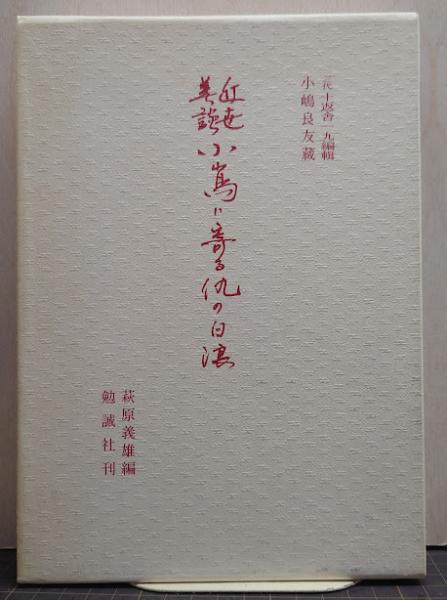 三代十返舎一九編輯
小嶋良友蔵
近世
美談
小嶌ニ寄る仇の白浪
萩原義雄編
勉誠社刊